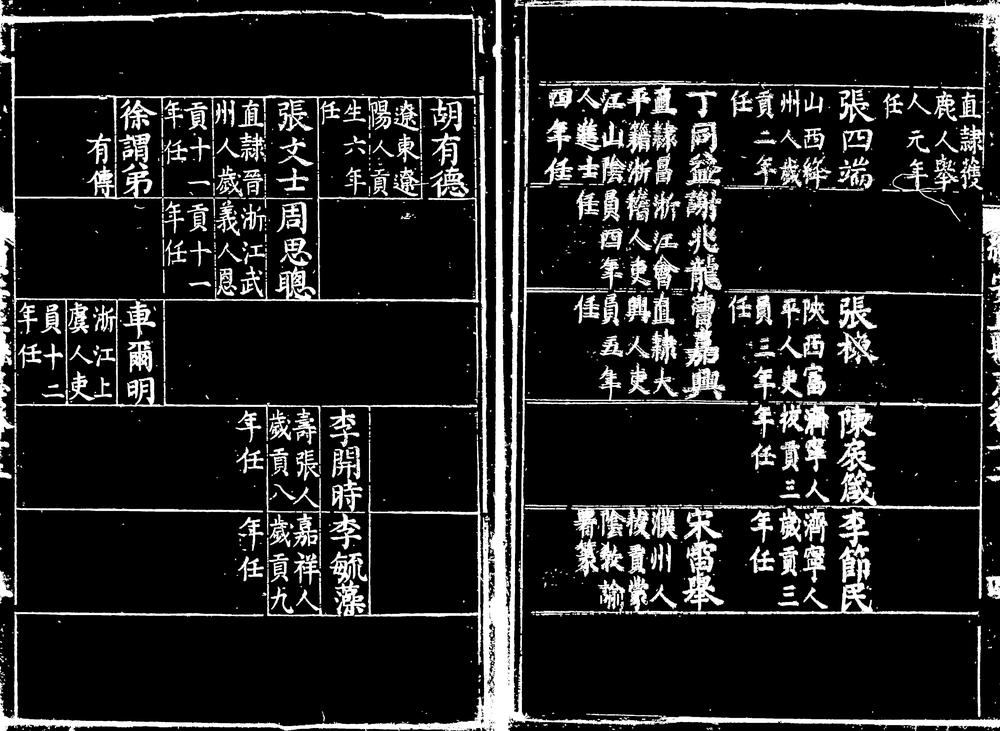 直隸獲
鹿人舉
人元年
任
張四端
山西絳
州人歲
貢二年
任
丁同益
直隸昌
平籍浙
江山陰
人進士
四年任
謝兆龍
浙江會
稽人吏
員四年
任
張機
陝西富
平人吏
員三年
任
曹嘉興
直隸大
興人吏
員五年
任
陳宸箴
濟寧人
拔貢三
年任
李節民
濟寧人
歲貢三
年任
宋雷舉
濮州人
拔貢蒙
陰教諭
署篆
胡有德
遼東遼
陽人貢
生六年
任
張文士
直隸晉
州人歲
貢十一
年任
徐謂弟
有傳
周思聰
浙江武
義人恩
貢十一
年任
車爾明
浙江上
虞人吏
員十二
年任
李開時
壽張人
歲貢八
年任
李毓藻
嘉祥人
歲貢九
年任